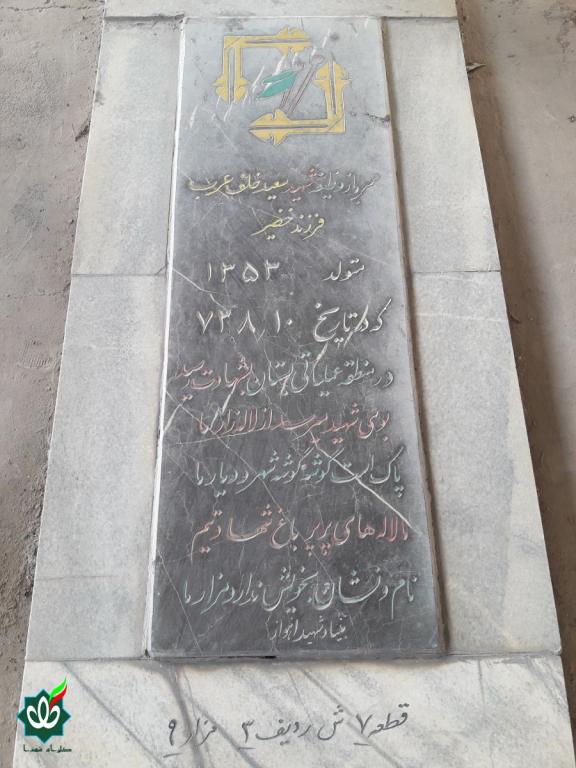 سرباز وظیفه شهید سعید خلف عرب
فرزند خضیر
متولد ۱۳۵۳
که در تاریخ ۷۳/۸/۱۰
در منطقه عملیاتی بستان بشهادت رسید
بوی شهید میرسد از لاله زار ما
پاک است گوشه گوشه شهر و دیار ما
ما لاله های پرپر باغ شهادتیم
نام و نشان بخویش ندارد مزار ما
بنیاد شهید اهواز
قطعه ۷ ش ردیف ۳ مزار ۹
گلزار شهدا